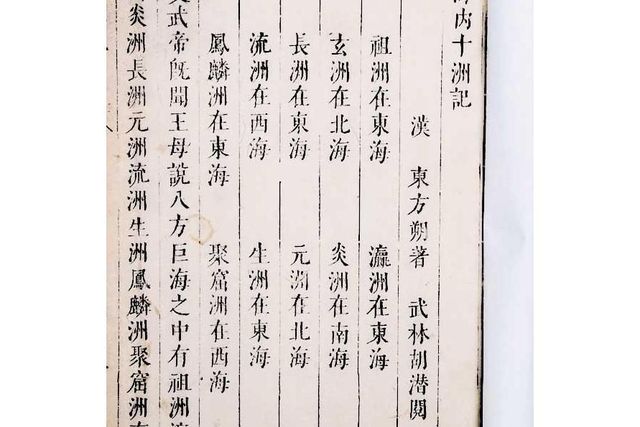 内十洲記
漢 東方朔著 武林胡潜閱
祖洲在東海 瀛洲在東海
玄洲在北海 炎洲在南海
長洲在東海 元洲在北海
流洲在西海 生洲在東海
鳳麟洲在東海 聚窟洲在西海
武帝旣聞王母說八方巨海之中有祖洲
炎洲長洲元洲流洲生洲鳳麟洲聚窟洲